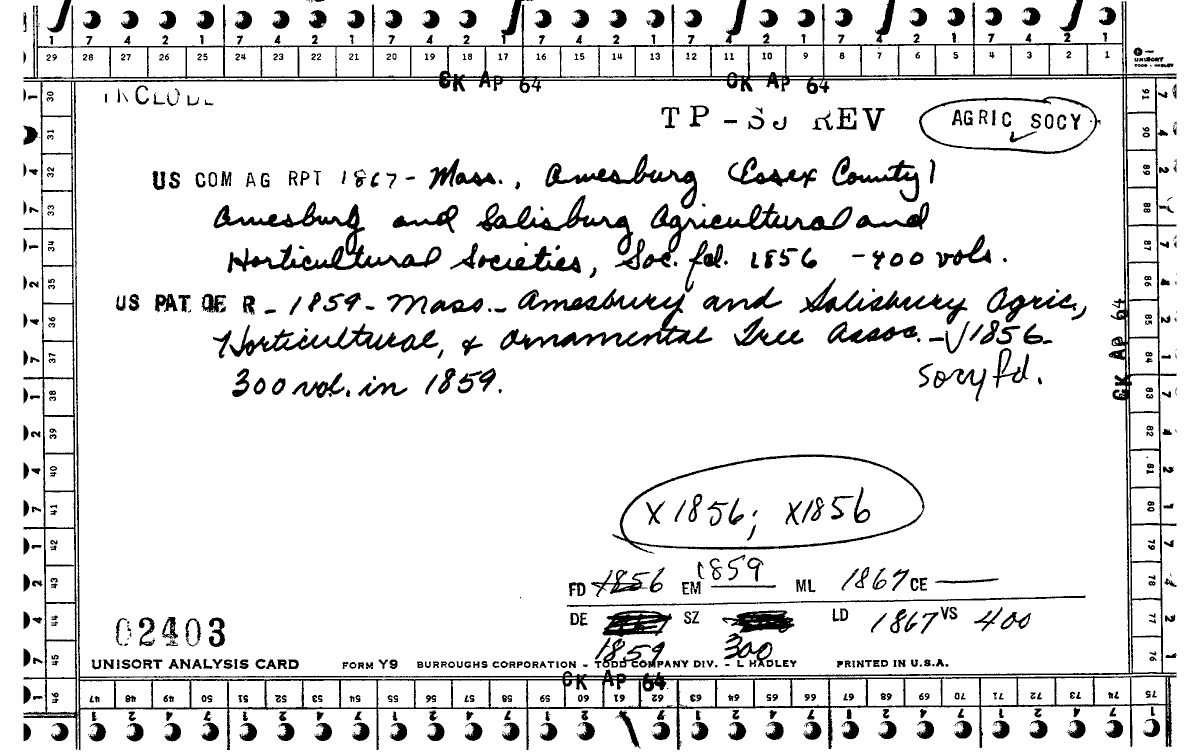 7 4 2 1 7 4 2 1 7 4 2 1 7 4 2 1 7 4 2 1 7 4 2 1 7 4 2 1
29 28 27 26 25 24 23 22 21 20 19 18 17 16 15 14 13 12 11 10 9 8 7 6 5 4 3 2 1
UNISORT
CK AP 64 CK AP 64
INCLUDE
TP-SJ REV AGRIC SOCY
US COM AG RPT 1867- Mass., Amesburg (Essex County)
Amesburg and Salisburg Agricultural and
Horticultural Societies, Soc. fd. 1856 -400 vols.
US PAT OF R - 1859- Mass.- Amesbury and Salisbury Agric.,
Horticultural, & Ornamental Tree Assoc.-√1856-
300 vol. in 1859. Socy fd.
CK AP 64
X 1856; X1856
FD 1856 EM 1859 ML 1867 CE —
DE SZ LD 1867 VS 400
1859 300
02403
UNISORT ANALYSIS CARD FORM Y9 BURROUGHS CORPORATION - TODD COMPANY DIV. - L HADLEY PRINTED IN U.S.A.
CK AP 64
30 31 32 33 34 35 36 37 38 39 40 41 42 43 44 45 46
91 90 89 88 87 86 85 84 83 82 81 80 79 78 77 76
47 48 49 50 51 52 53 54 55 56 57 58 59 60 61 62 63 64 65 66 67 68 69 70 71 72 73 74 75